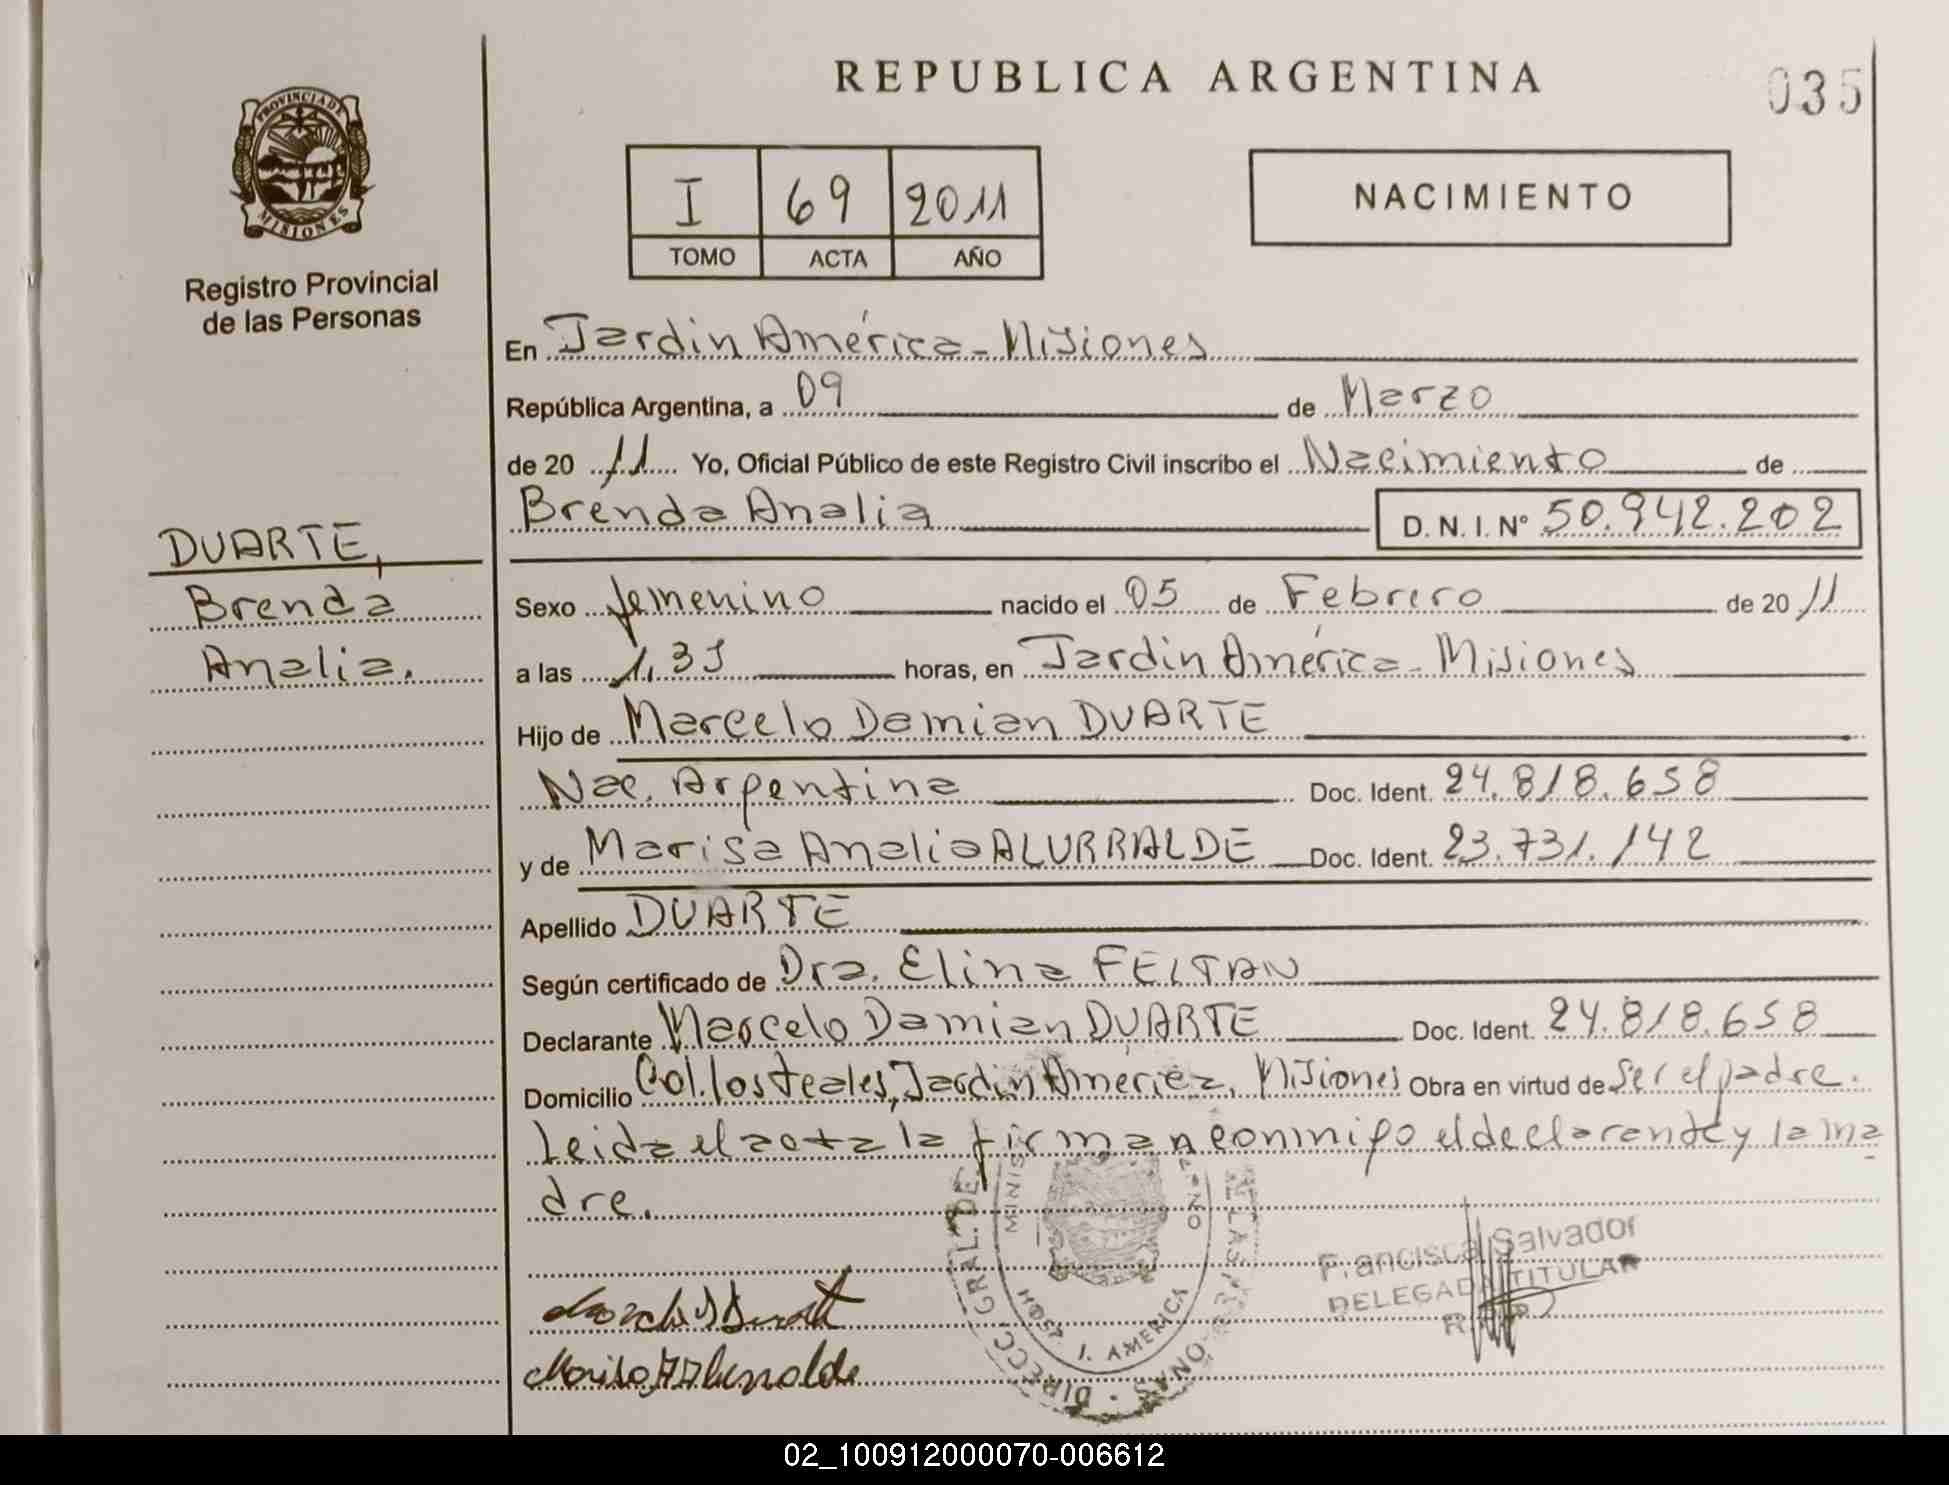 REPUBLICA ARGENTINA
035
I 69 2011
TOMO ACTA AÑO
NACIMIENTO
PROVINCIA DE
MISIONES
Registro Provincial
de las Personas
DUARTE,
Brenda
Analia.
En Jardin América - Misiones
República Argentina, a 09 de Marzo
de 20 11 Yo, Oficial Público de este Registro Civil inscribo el Nacimiento de
Brenda Analia D. N. I. N° 50.942.202
Sexo femenino nacido el 05 de Febrero de 20 11
a las horas, en Jardin América - Misiones
Hijo de Marcelo Damian DUARTE
Nac. Argentina Doc. Ident. 24.818.658
y de Marisa Analia ALURRALDE Doc. Ident. 23.731.142
Apellido DUARTE
Según certificado de Dra. Elina FELTAN
Declarante Marcelo Damian DUARTE Doc. Ident. 24.818.658
Domicilio Col. los teales, Jardin América, Misiones Obra en virtud de ser el padre.
Leida el acta la firman conmigo el declarante y la ma
dre.
DIRECC. GRAL. DE LAS PERSONAS
MINIS
HOSP. J. AMERICA
Francisca Salvador
DELEGADA TITULAR
R.P.P
02_100912000070-006612